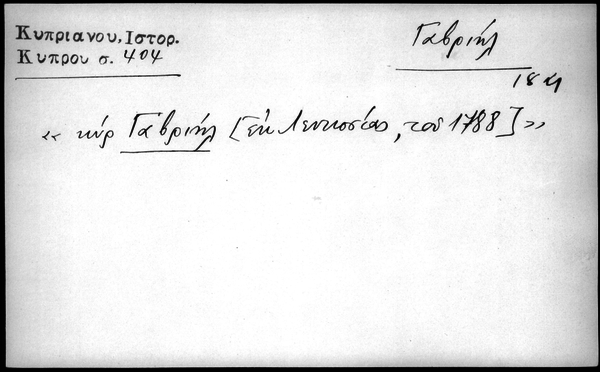 Κυπριανου, Ιστορ.
Κυπρου σ. 404
Γαβριήλ
« κύρ Γαβριήλ [ἐκ Λευκοσίας, τοῦ 1788] »